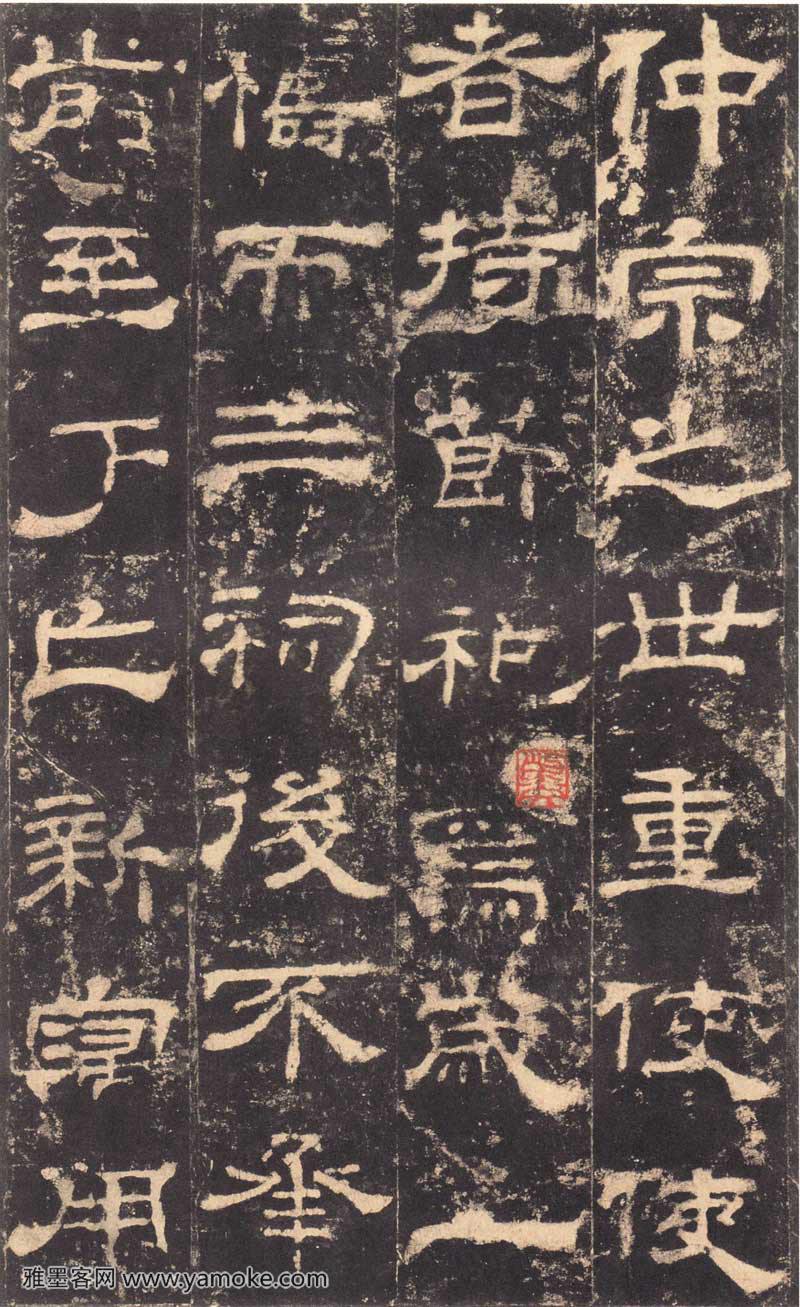 仲宗之世重使使
者持節祀焉歲一
禱而三祠後不承
前至于亡新寖用
雅墨客网 www.yamoke.com